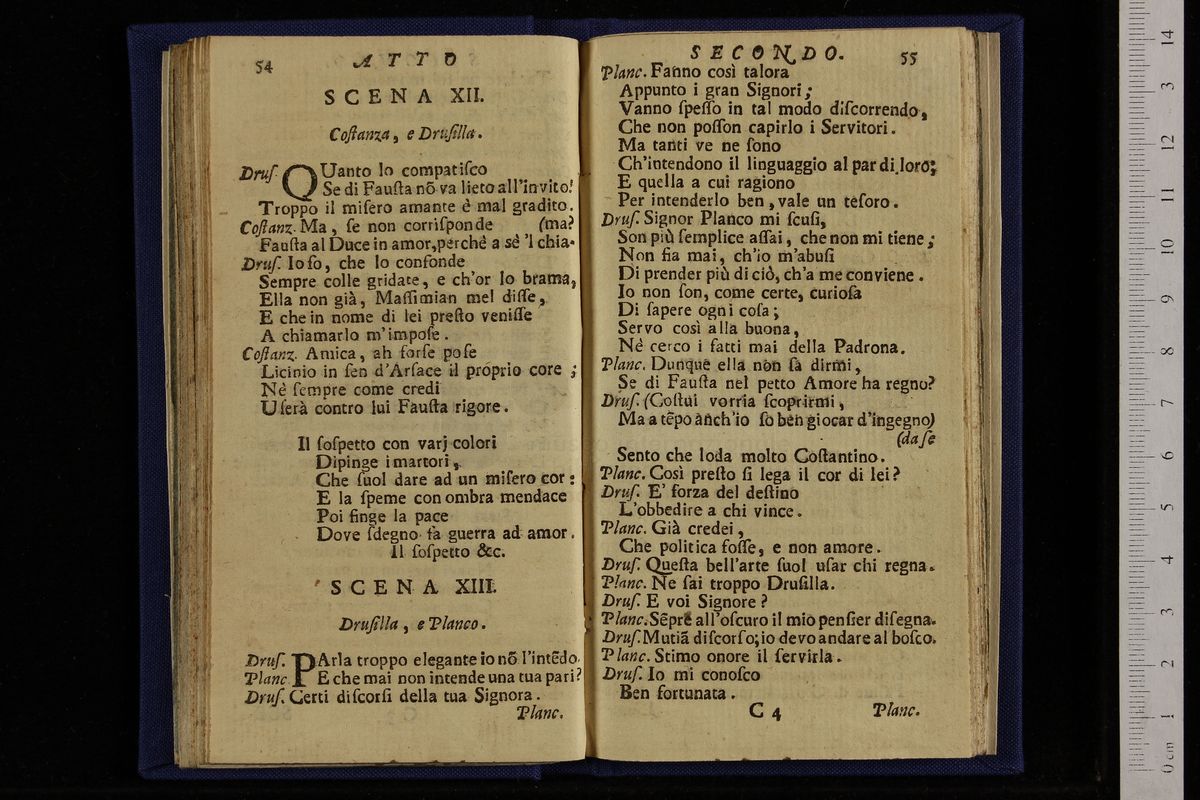 54
ATTO
SCENA XII.
Coſtanza, e Druſilla.
Druſ. QUanto lo compatiſco
Se di Fauſta nõ va lieto all'invito!
Troppo il miſero amante è mal gradito.
Coſtanz. Ma, ſe non corriſponde (ma?
Fauſta al Duce in amor, perchè a sè 'l chia-
Druſ. Io ſo, che lo confonde
Sempre colle gridate, e ch'or lo brama,
Ella non già, Maſſimian mel diſſe,
E che in nome di lei preſto veniſſe
A chiamarlo m'impoſe.
Coſtanz. Amica, ah forſe poſe
Licinio in ſen d'Arſace il proprio core;
Nè ſempre come credi
Uſerà contro lui Fauſta rigore.
Il ſoſpetto con varj colori
Dipinge i martori,
Che ſuol dare ad un miſero cor:
E la ſpeme con ombra mendace
Poi finge la pace
Dove ſdegno fà guerra ad amor.
Il ſoſpetto &c.
SCENA XIII.
Druſilla, e Planco.
Druſ. PArla troppo elegante io nõ l'intẽdo.
Planc. E che mai non intende una tua pari?
Druſ. Certi diſcorſi della tua Signora.
Planc.
SECONDO.
55
Planc. Fanno così talora
Appunto i gran Signori;
Vanno ſpeſſo in tal modo diſcorrendo,
Che non poſſon capirlo i Servitori.
Ma tanti ve ne ſono
Ch'intendono il linguaggio al par di loro;
E quella a cui ragiono
Per intenderlo ben, vale un teſoro.
Druſ. Signor Planco mi ſcuſi,
Son più ſemplice aſſai, che non mi tiene;
Non fia mai, ch'io m'abuſi
Di prender più di ciò, ch'a me conviene.
Io non ſon, come certe, curioſa
Di ſapere ogni coſa;
Servo così alla buona,
Nè cerco i fatti mai della Padrona.
Planc. Dunque ella non ſà dirmi,
Se di Fauſta nel petto Amore ha regno?
Druſ. (Coſtui vorria ſcoprirmi,
Ma a tẽpo anch'io ſo ben giocar d'ingegno)
(da ſe
Sento che loda molto Coſtantino.
Planc. Così preſto ſi lega il cor di lei?
Druſ. E' forza del deſtino
L'obbedire a chi vince.
Planc. Già credei,
Che politica foſſe, e non amore.
Druſ. Queſta bell'arte ſuol uſar chi regna.
Planc. Ne ſai troppo Druſilla.
Druſ. E voi Signore?
Planc. Sẽpre all'oſcuro il mio penſier diſegna.
Druſ. Mutiã diſcorſo; io devo andare al boſco.
Planc. Stimo onore il ſervirla.
Druſ. Io mi conoſco
Ben fortunata.
C 4
Planc.